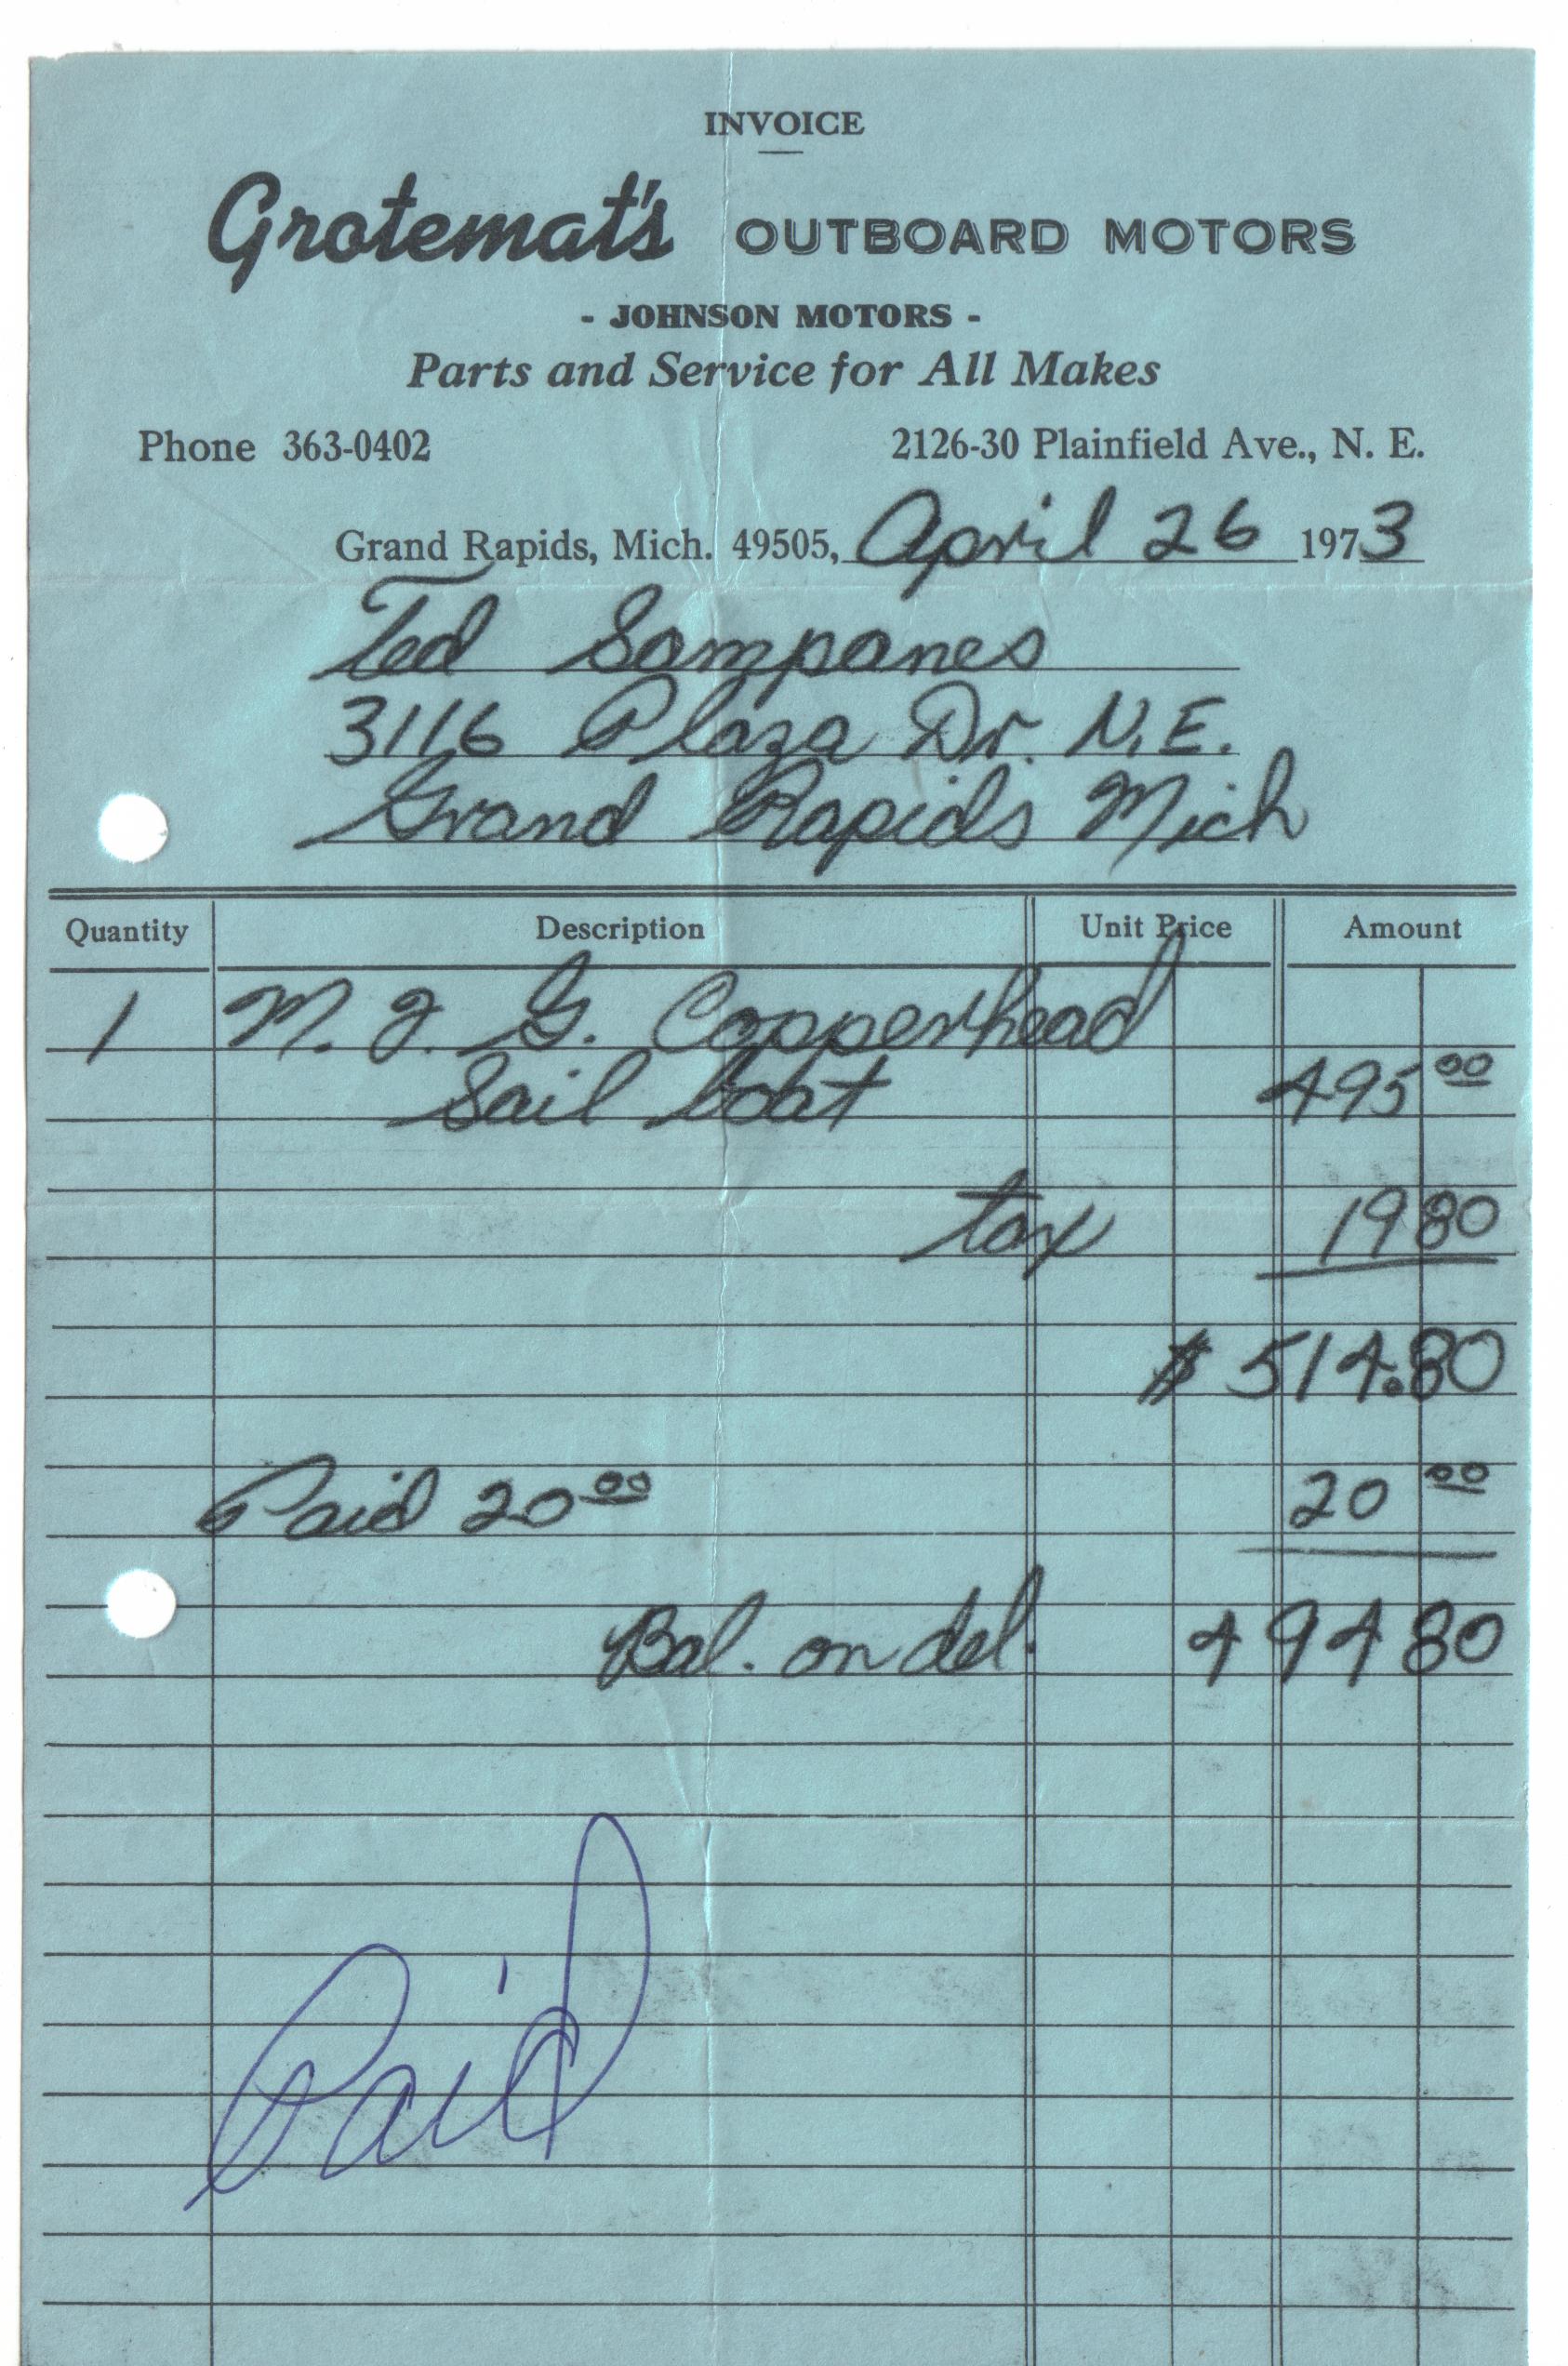 INVOICE
Grotemat's OUTBOARD MOTORS
- JOHNSON MOTORS -
Parts and Service for All Makes
Phone 363-0402 2126-30 Plainfield Ave., N. E.
Grand Rapids, Mich. 49505, April 26 1973
Ted Sampanes
3116 Plaza Dr. N.E.
Grand Rapids Mich
Quantity Description Unit Price Amount
1 M. F. G. Copperhead
Sail boat 495 00
tax 19 80
$ 514.80
Paid 20 00 20 00
Bal. on del. 494 80
Paid